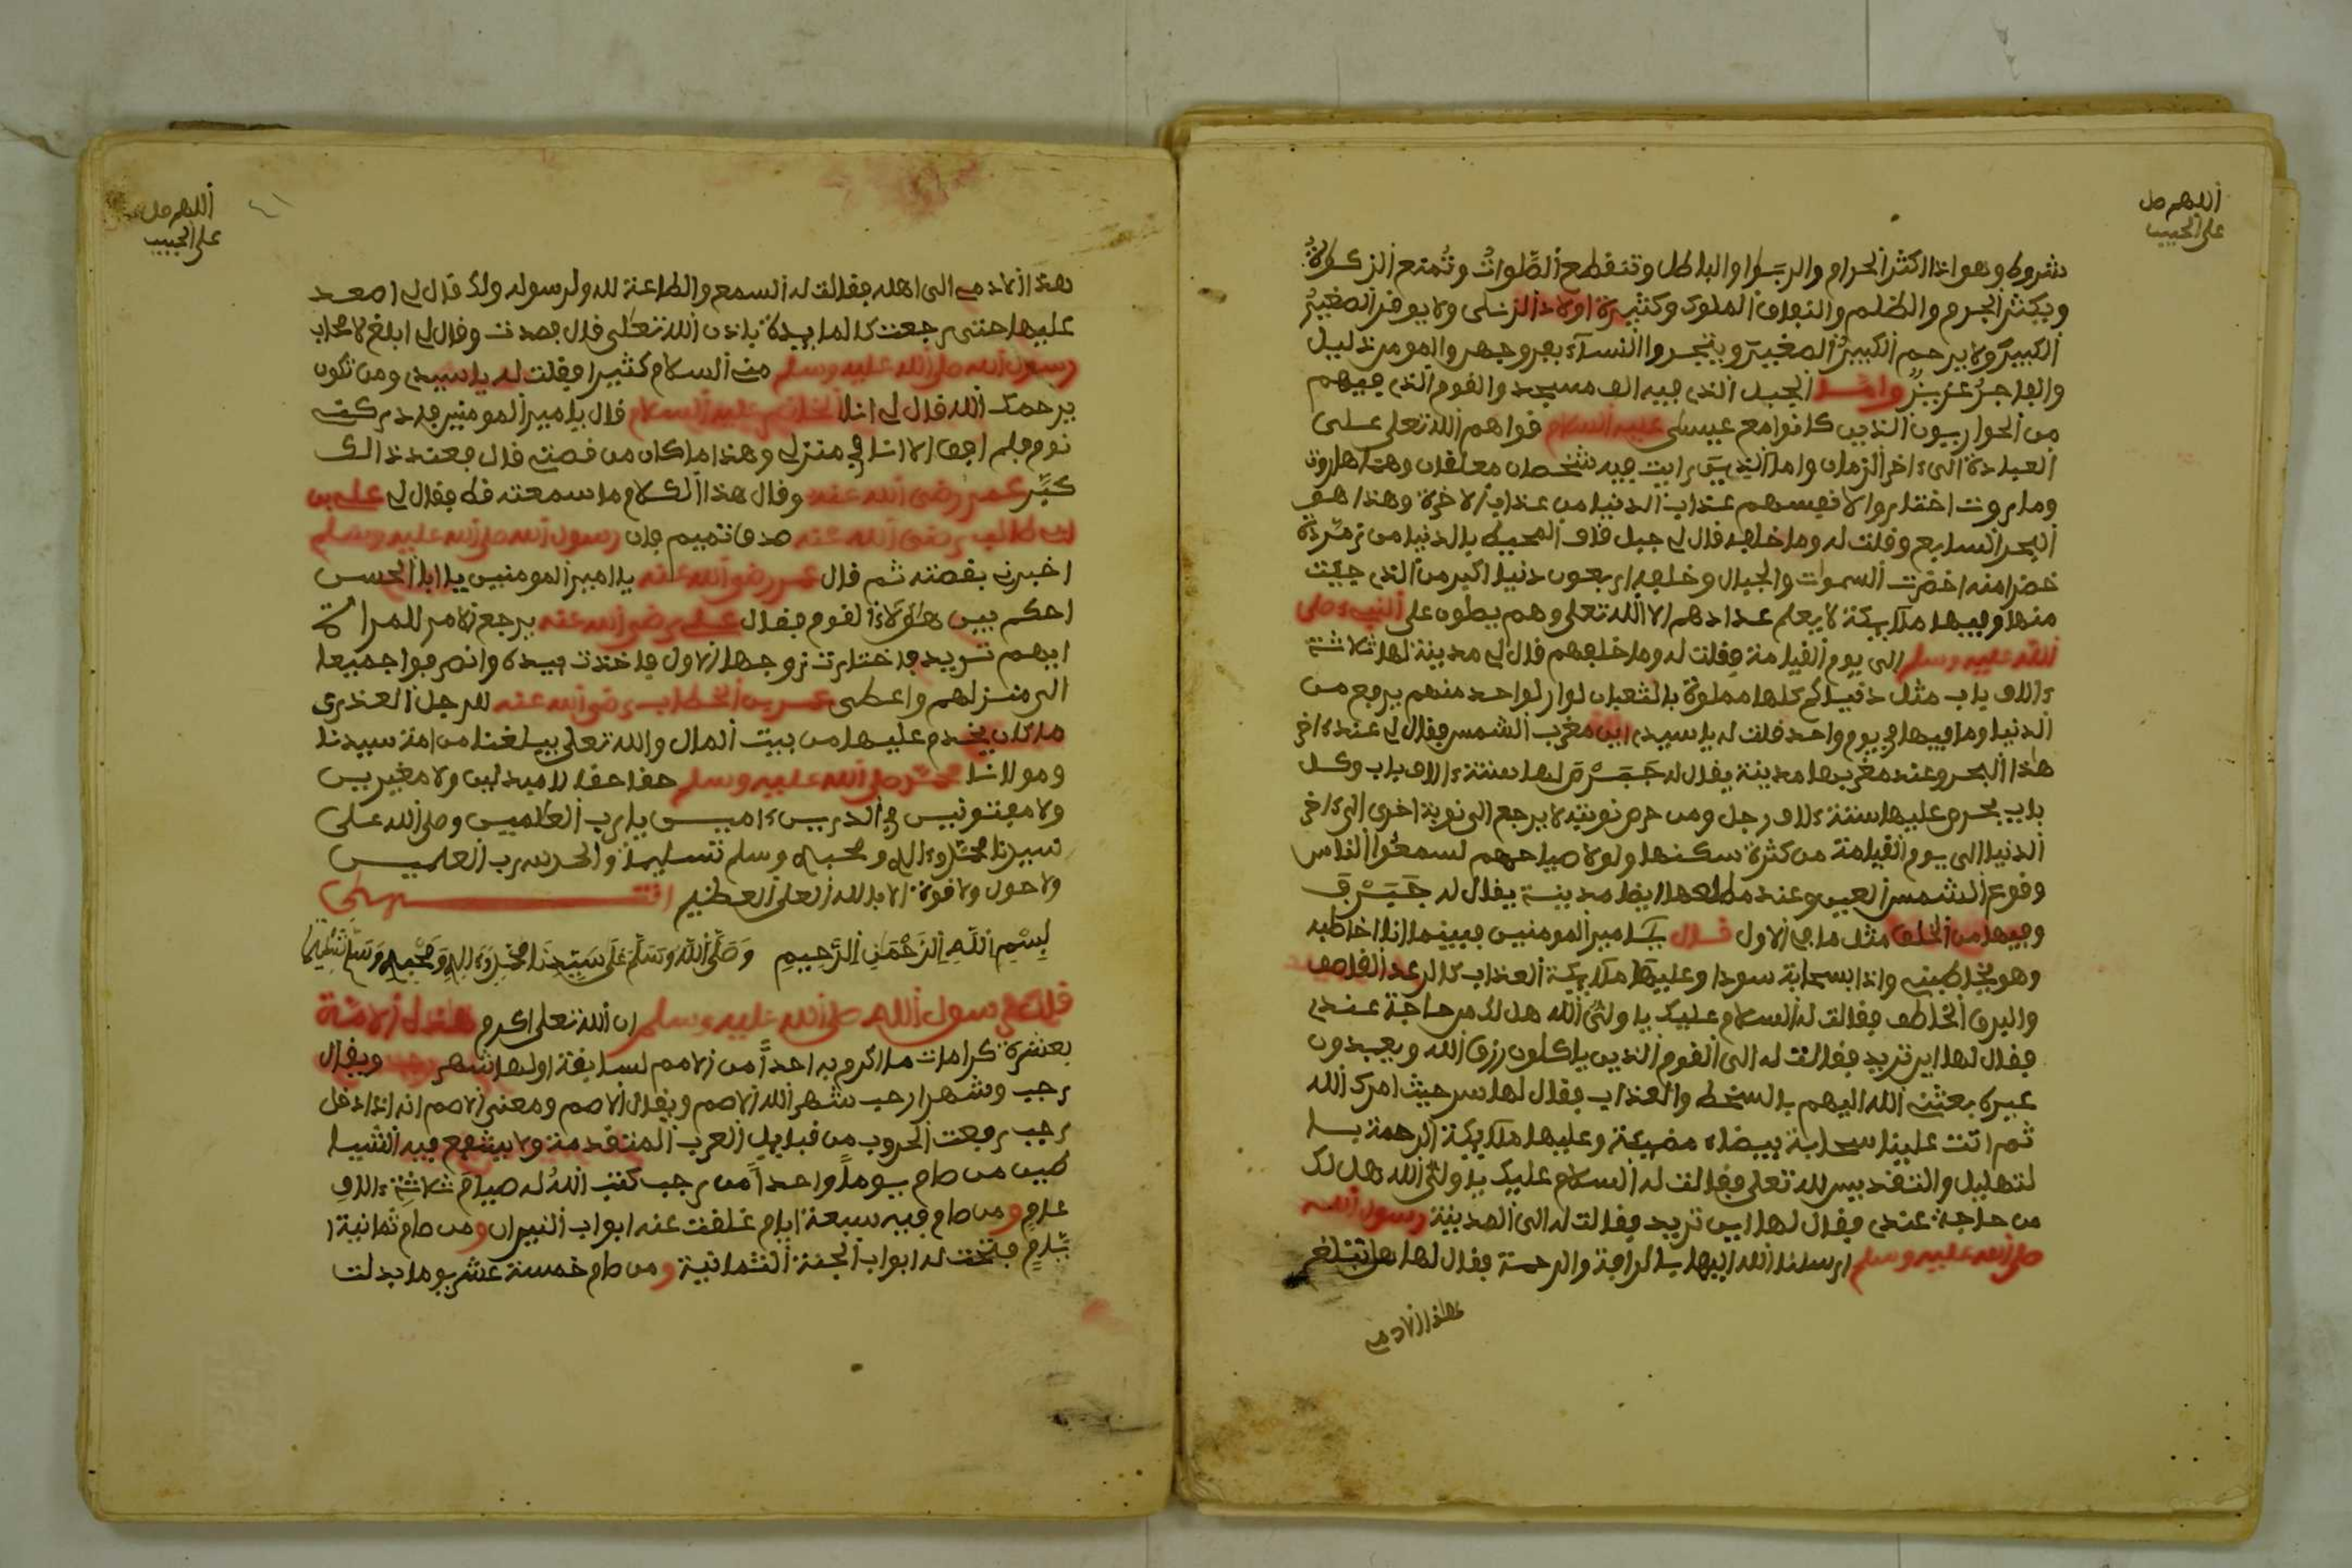 اللهم صل
على الحبيب
شروط وهو اذا اكثر الحرام والربوا والباطل وتنقطع الصلوات وتمنع الزكاة
ويكثر الجرم والظلم والنفاق الملوك وكثيرة اولاد الزنى ولا يوقر الصغير
الكبير ولا يرحم الكبير الصغير ويتجروا النساء بفروجهم والمومن ذليل
والفاجر عزيز واما الجبل الذي فيه الف مسجد والقوم الذي فيهم
من الحواريون الذين كانوا مع عيسى عليه السلام قواهم الله تعلى على
العبادة الى ءاخر الزمان واما الذي رايت فيه شخصان معلقان وهما هاروت
وماروت اختاروا لانفسهم عذاب الدنيا من عذاب الاخرة وهذا هو
البحر السابع وقلت له وما خلفه قال لي جبل قاف المحيط بالدنيا من زمردة
خضرا منه اخضرت السموات والجبال وخلفه اربعون دنيا اكبر من الذي جيت
منها وفيها ملايكة لا يعلم عدادهم الا الله تعلى وهم يصلون على النبيء صلى
الله عليه وسلم الى يوم القيامة فقلت له وما خلفهم قال لي مدينة لها ثلاثة
ءالاف باب مثل دنياكم كلها مملوة بالثعبان لو ان لواحد منهم يرفع من
الدنيا وما فيها في يوم واحد قلت له يا سيدي اين مغرب الشمس فقال لي عند ءاخر
هذا البحر وعند مغربها مدينة يقال له لها ستة ءالاف باب وكل
باب يحرص عليها ستة ءالاف رجل ومن حرص نوبته لا يرجع الى نوبة اخرى الى ءاخر
الدنيا الى يوم القيامة من كثرة سكنها ولولا صياحهم لسمعوا الناس
وقوع الشمس العين وعند مطلعها ايضا مدينة يقال له
وفيها من الخلق مثل ما في الاول قال يا مير المومنين فبينما انا اخاطبه
وهو يخاطبني واذا بسحابة سودا وعليها ملايكة العذاب كالرعد القاصف
والبرق الخاطف فقالت له السلام عليك يا ولي الله هل لك من حاجة عندي
فقال لها اين تريد فقالت له الى القوم الذين ياكلون رزق الله ويعبدون
غيره بعثني الله اليهم بالسخط والعذاب فقال لها سر حيث امرك الله
ثم اتت علينا سحابة بيضاء مضيئة وعليها ملايكة الرحمة با
لتهليل والتقديس لله تعلى فقالت له السلام عليك يا ولي الله هل لك
من حاجة عندي فقال لها اين تريد فقالت له الى المدينة رسول الله
صلى الله عليه وسلم ارسلنا الله اليها بالرافة والرحمة فقال لها هل تبلغ
هذا الادمي
اللهم صل
على الحبيب
٤١
هذا الادمي الى اهله فقالت له السمع والطاعة لله ولرسوله ولك قال لي اصعد
عليها حتى رجعت كلمابيدة باذن الله تعلى قال فصدت وقال لي ابلغ لاصحاب
رسول الله صلى الله عليه وسلم مني السلام كثيرا فقلت له يا سيدي ومن تكون
يرحمك الله قال لي انا الخضر عليه السلام قال يا مير المومنين فادركت
نوم فلم افق الا انا في منزلي وهذا ما كان من قصتي قال فعند ذالك
كبر عمر رضي الله عنه وقال هذا الكلام ما سمعته قط فقال لي علي بن
ابي طالب رضي الله عنه صدق تميم فان رسول الله صلى الله عليه وسلم
اخبرني بقصته ثم قال عمر رضي الله عنه يا امير المومنين يا ابا الحسن
احكم بين هؤلاء القوم فقال علي رضي الله عنه يرجع الامر للمراة
ايهم تريد فاختارت زوجها الاول فاخذت بيده وانصرفوا جميعا
الى منزلهم واعطى عمر بن الخطاب رضي الله عنه للرجل العذري
ما كان يخدم عليها من بيت المال والله تعلى يبلغنا من امة سيدنا
ومولانا محمد صلى الله عليه وسلم حقا حقا لا مبدلين ولا مغيرين
ولا مفتونين في الدين ءامين يا رب العالمين وصلى الله على
سيدنا محمد وءاله وصحبه وسلم تسليما والحمد لله رب العلمين
ولا حول ولا قوة الا بالله العلي العظيم انتهى
بسم الله الرحمن الرحيم وصلى الله وسلم على سيدنا محمد وءاله وصحبه وسلم تسليما
قال رسول الله صلى الله عليه وسلم ان الله تعلى اكرم هذه الامة
بعشرة كرامات ما اكرم به احدا من الامم لسابقة اولها شهر رجب ويقال
رجب وشهر رجب شهر الله الاصم ويقال الاصم ومعنى الاصم انه اذا دخل
رجب رفعت الحروب من قبايل العرب المتقدمة ولا يشفع فيه الشيا
طين من صام يوما واحدا من رجب كتب الله له صيام ثلاثة ءالاف
عام ومن صام فيه سبعة ايام غلقت عنه ابواب النيران ومن صام ثمانية ا
يام فتحت له ابواب الجنة الثمانية ومن صام خمسة عشر يوما بدلت